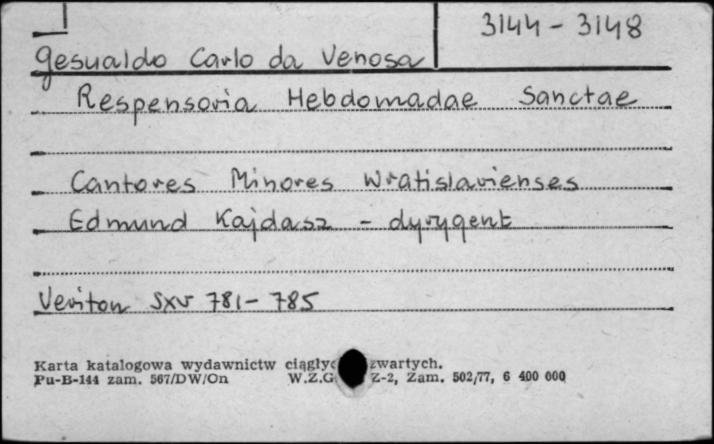 3144 - 3148
Gesualdo Carlo da Venosa
Respensoria Hebdomadae Sanctae
Cantores Minores Wratislavienses
Edmund Kajdasz - dyrygent
Veriton SXV 781 - 785
Karta katalogowa wydawnictw ciągłyc zwartych.
Pu-B-144 zam. 567/DW/On W.Z.G Z-2, Zam. 502/77, 6 400 000